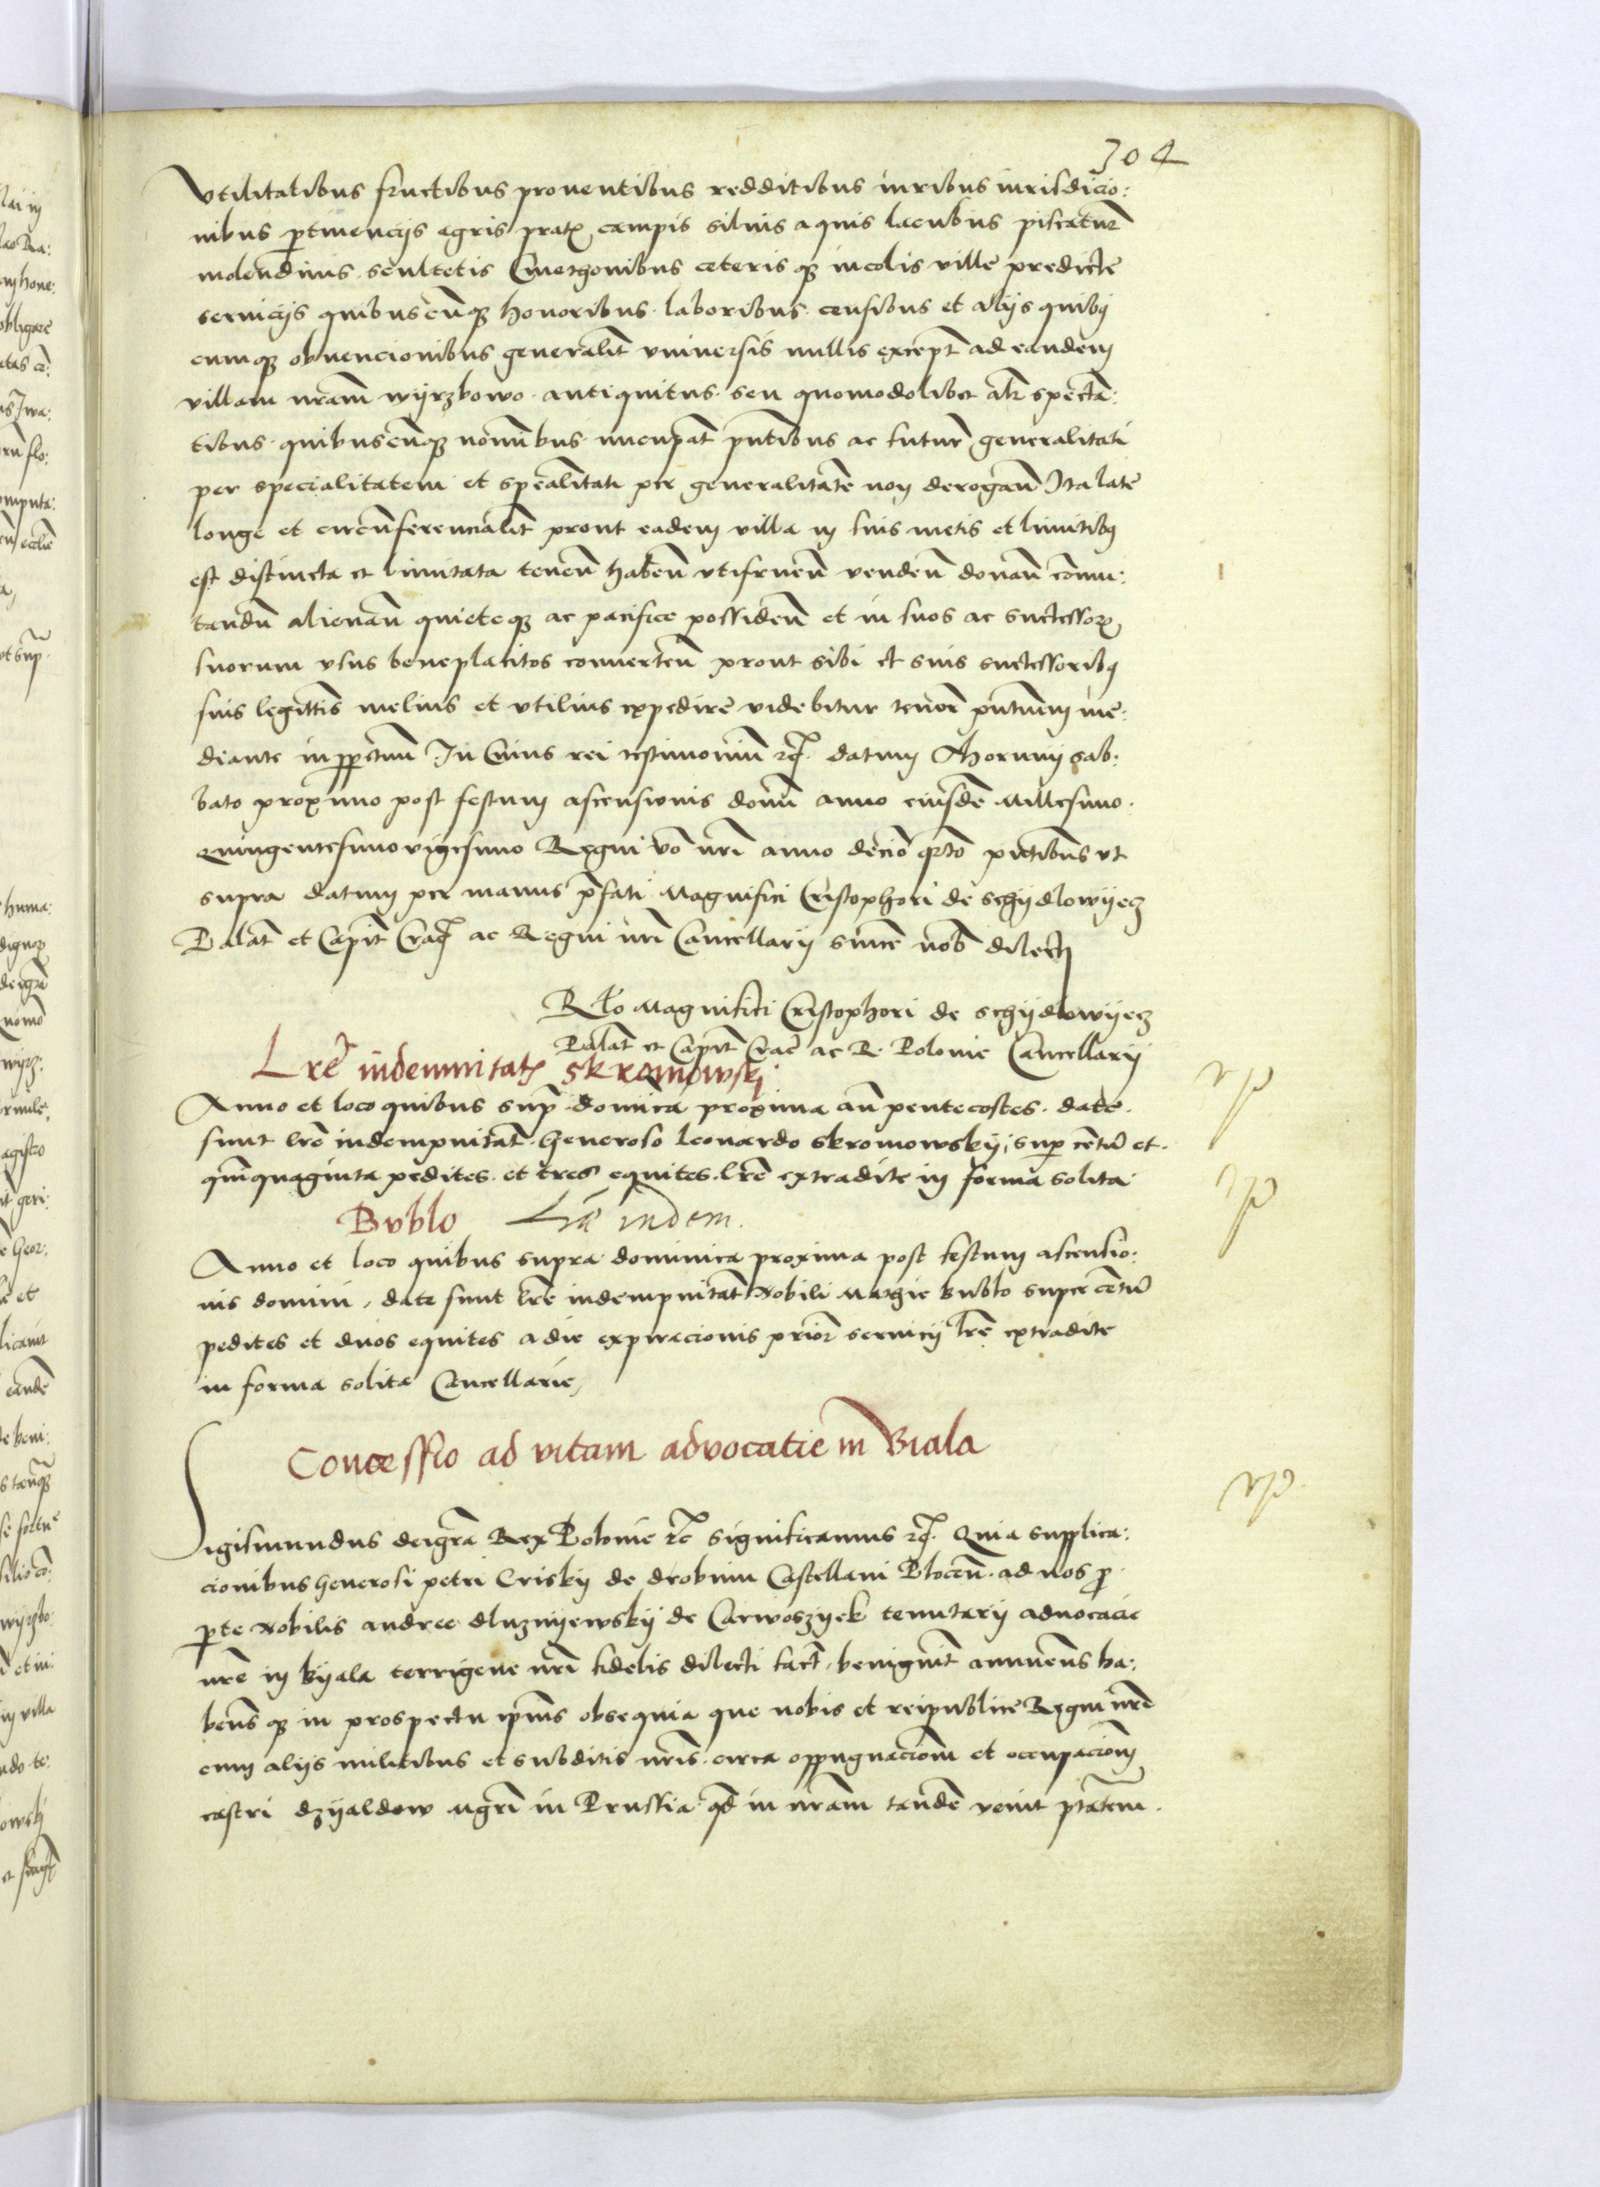 304
Vtilitatibus fructibus prouentibus redditibus iuribus iurisdicio:
nibus ptinencijs agris prat? campis siluis aquis lacubus piscatur
molendinis scultetis Cmethonibus ceteris q? incolis ville predicte
seruicijs quibuscunq? honoribus laboribus censibus et alijs quib?
cumq? obuencionibus generalit vniuersis nullis except ad eandem
villam nram wyrzbowo antiquitus seu quomodolibet ab spectan:
tibus quibuscunq? nominibus nuncupat pntibus ac futur generalitati
per specialitatem et spealitati per generalitate non derogan Ita late
longe et circunferencialit prout eadem villa in suis metis et limitib?
est distincta et limitata tenen haben vtifruen venden donan commu:
tandu alienan quieteq? ac pacifice possiden et in suos ac successor?
suorum vsus beneplacitos conuerten prout sibi et suis successorib?
suis legittis melius et vtilius expedire videbitur tenore pntium me:
diante inppetuu In Cuius rei testimoniu rc. datum Thorunij sab:
bato proximo post festum ascensionis domi anno eiusde Millesimo
Quingentesimovigesimo Regni vo nri anno decio qrto pntibus vt
supra datum per manus pfati Magnifici Cristophori de schydlowyecz
Palat et Capit Crac ac Regni nri Cancellarij sincere nob dilecti
Rlo Magnifici Cristophori de schydlowyecz
Palat et Capit Crac ac R. Polonie Cancellarij
Lre indemnitat? skromowskj
Anno et loco quibus sup. domica proxima an pentecostes. date
sunt lre indempnitat. Generoso Leonardo skromowskij sup centu et
quinquaginta pedites et tres equites. lre extradite in forma solita
Bvblo Lrae indem.
Anno et loco quibus supra dominica proxima post festum ascensio:
nis domini, date sunt lre indempnitat Nobili Mathie bublo super centu
pedites et duos equites a die expiracionis prior seruicij lre extradite
in forma solita Cancellarie,
Concessio ad vitam advocatie in Biala
Sigismundus deigra Rex Polonie rc significamus rc. Quia supplica:
cionibus Generosi petri Crisky de drobnin Castellani Plocen. ad nos p
pte Nobilis andree dluznyewsky de Carwoszyek tenutarij aduocacie
nre in byala terrigene nri fidelis dilecti fact, benignit annuens ha:
bens q? in prospectu ipius obsequia que nobis et reipublice Regni nri
cum alijs militibus et subditis nris. circa oppugnaciom et occupaciom
castri dzyaldow Mgri in Prussia qd in nram tande venit ptatem.